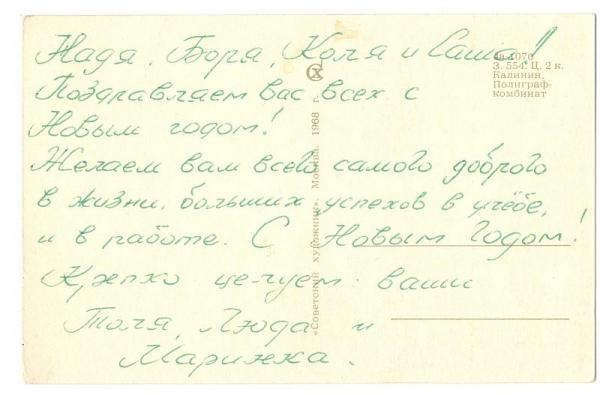 Надя, Боря, Коля и Саша!
Поздравляем вас всех с
Новым годом!
Желаем вам всего самого доброго
в жизни, больших успехов в учёбе,
и в работе. С Новым Годом!
Крепко целуем ваши
Толя, Люда и
Маринка.
З. 554. Ц. 2 к.
Калинин,
Полиграф-
комбинат
«Советский художник». Москва. 1968 г.